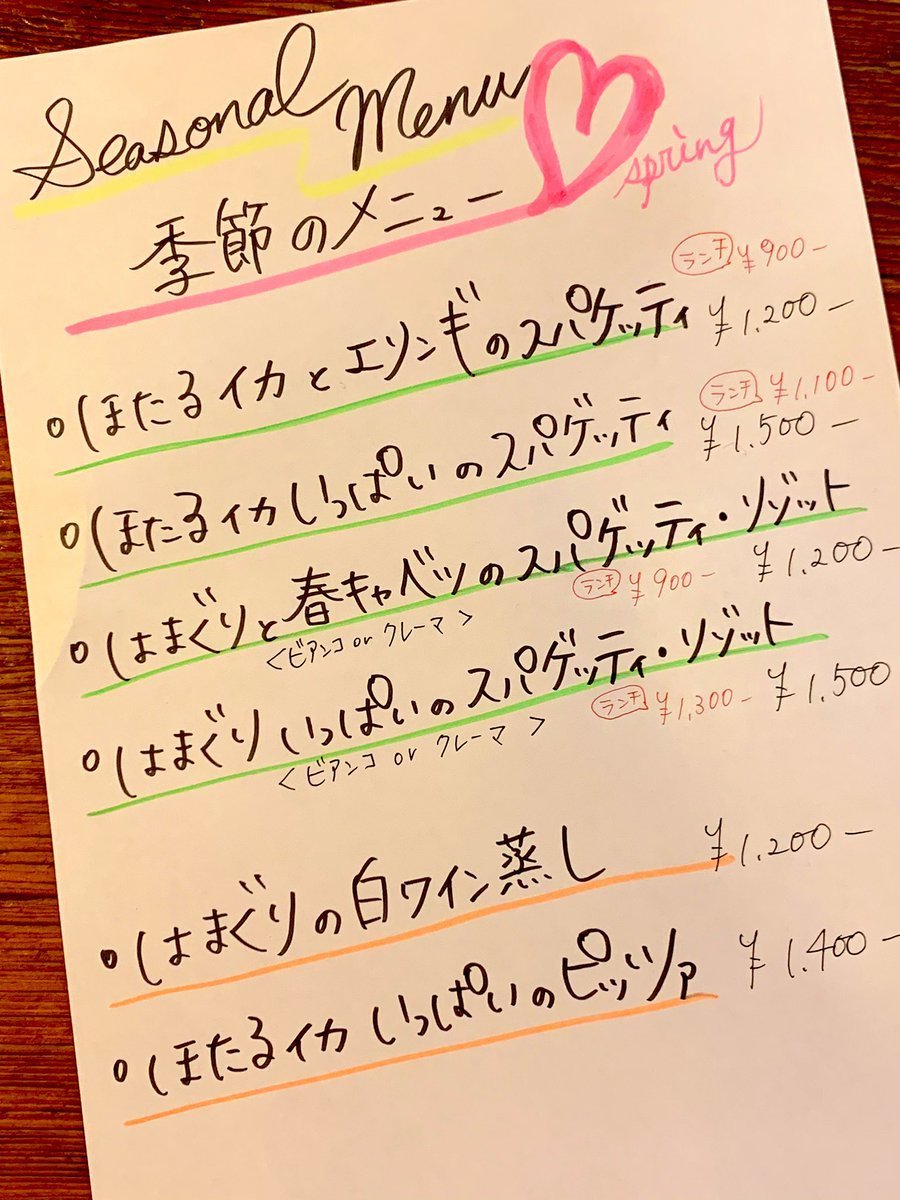 Seasonal Menu
spring
季節のメニュー
ランチ ¥900-
。ほたるイカとエリンギのスパゲッティ ¥1,200-
ランチ ¥1,100-
。ほたるイカいっぱいのスパゲッティ ¥1,500-
。はまぐりと春キャベツのスパゲッティ・リゾット
<ビアンコ or クレーマ> ランチ ¥900- ¥1,200-
。はまぐりいっぱいのスパゲッティ・リゾット
<ビアンコ or クレーマ> ランチ ¥1,300- ¥1,500
。はまぐりの白ワイン蒸し ¥1,200-
。ほたるイカいっぱいのピッツァ ¥1,400-